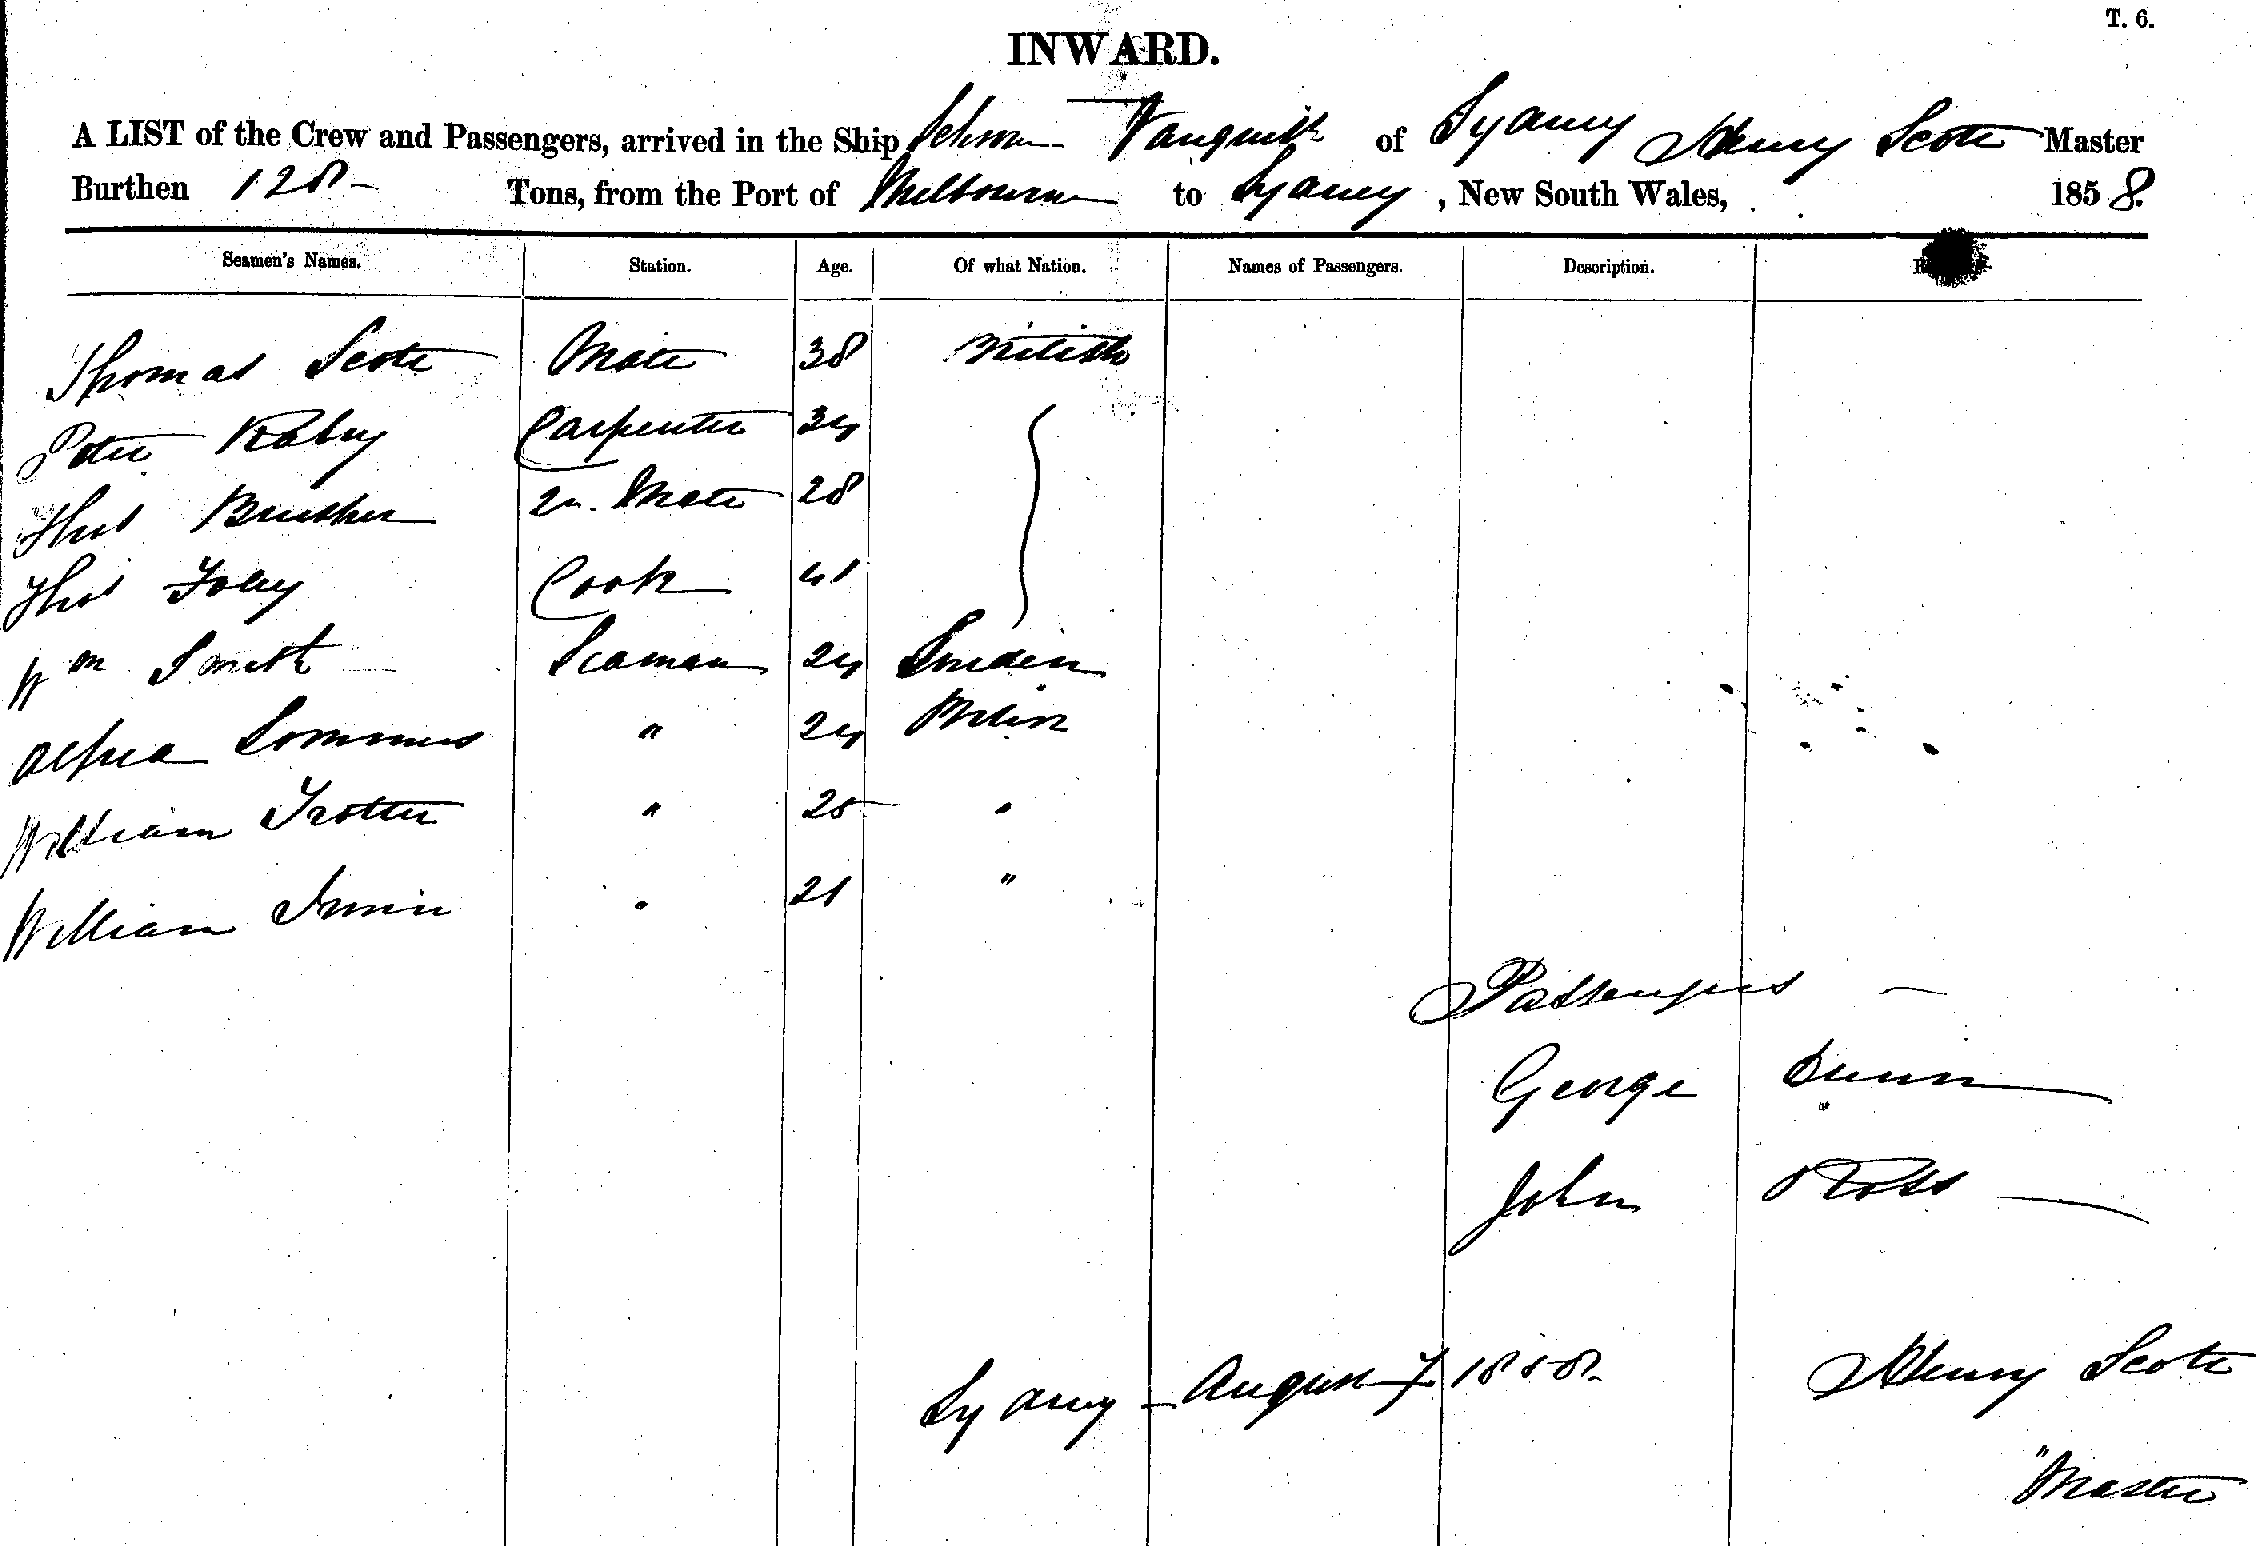 T. 6.
INWARD.
A LIST of the Crew and Passengers, arrived in the Ship Schooner Vanquish of Sydney Henry Scott Master
Burthen 128 Tons, from the Port of Melbourne to Sydney, New South Wales, 1858.
Seamen's Names. Station. Age. Of what Nation. Names of Passengers. Description.
Thomas Scott Mate 38 British
Peter Raby Carpenter 34
Thos 2n. Mate 28
Thos Foley Cook 41
Wm Smith Seaman 24
Alfred " 24
William Trotter " 25 "
William Irwin " 21 "
Passengers
George Dunn
John Ross
Sydney August 7 1858 Henry Scott
Master